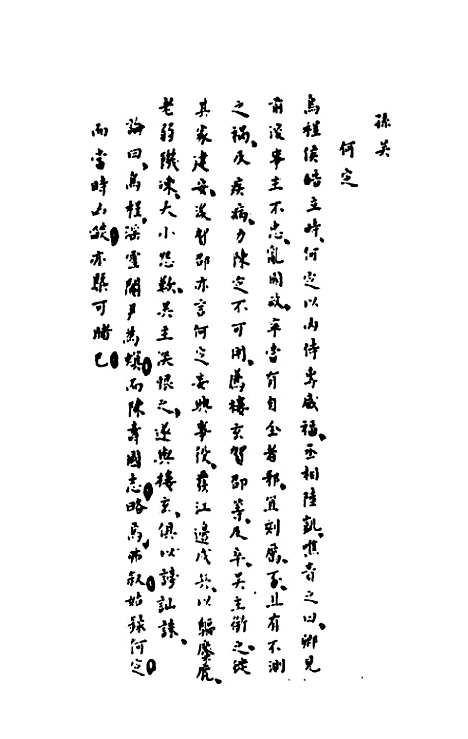 孫吳
何定
烏程侯皓立時、何定以內侍專威福、丞相陸凱、憔責之曰、卿見
前後事主不忠、亂國政、寧當有自全者邪、宜刻厲、不且有不測
之禍、及疾病、力陳定不可用、薦樓玄賀邵等、及卒、吳主銜之、徙
其家建安、後賀邵亦言何定妄興事役、發江邊戍兵、以驅麋鹿、
老弱饑凍、大小怨歎、吳主深恨之、遂與樓玄、俱以謗訕誅、
論曰、烏程淫虐、閹尹為蠥、而陳壽國志略焉、弗叙、始錄何定、
而當時凶燄、亦槩可睹已、